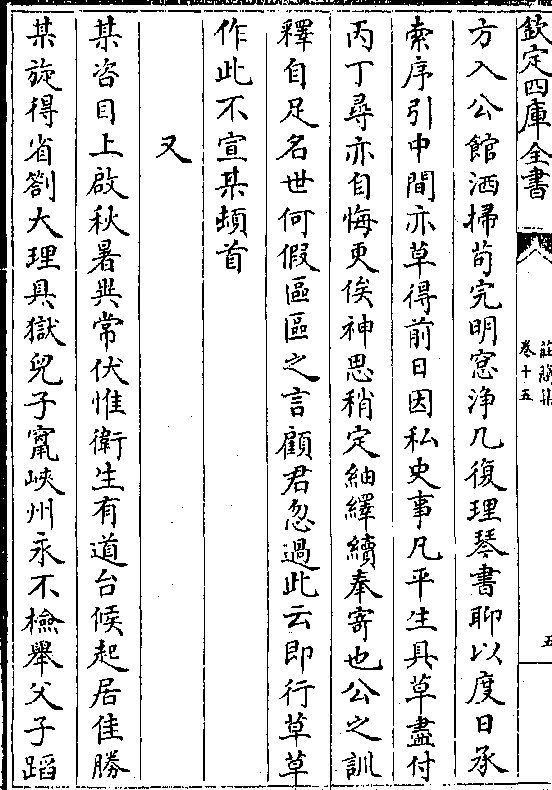 欽定四庫全書
莊簡集
卷十五
五
方入公館洒掃苟完明窓浄几復理琴書聊以度日承
索序引中間亦草得前日因私史事凡平生具草盡付
丙丁尋亦自悔更俟神思稍定紬繹續奉寄也公之訓
釋自足名世何假區區之言顧君忽過此云即行草草
作此不宣某頓首
又
某咨目上啟秋暑異常伏惟衛生有道台候起居佳勝
某旋得省劄大理具獄兒子竄峽州永不檢舉父子蹈